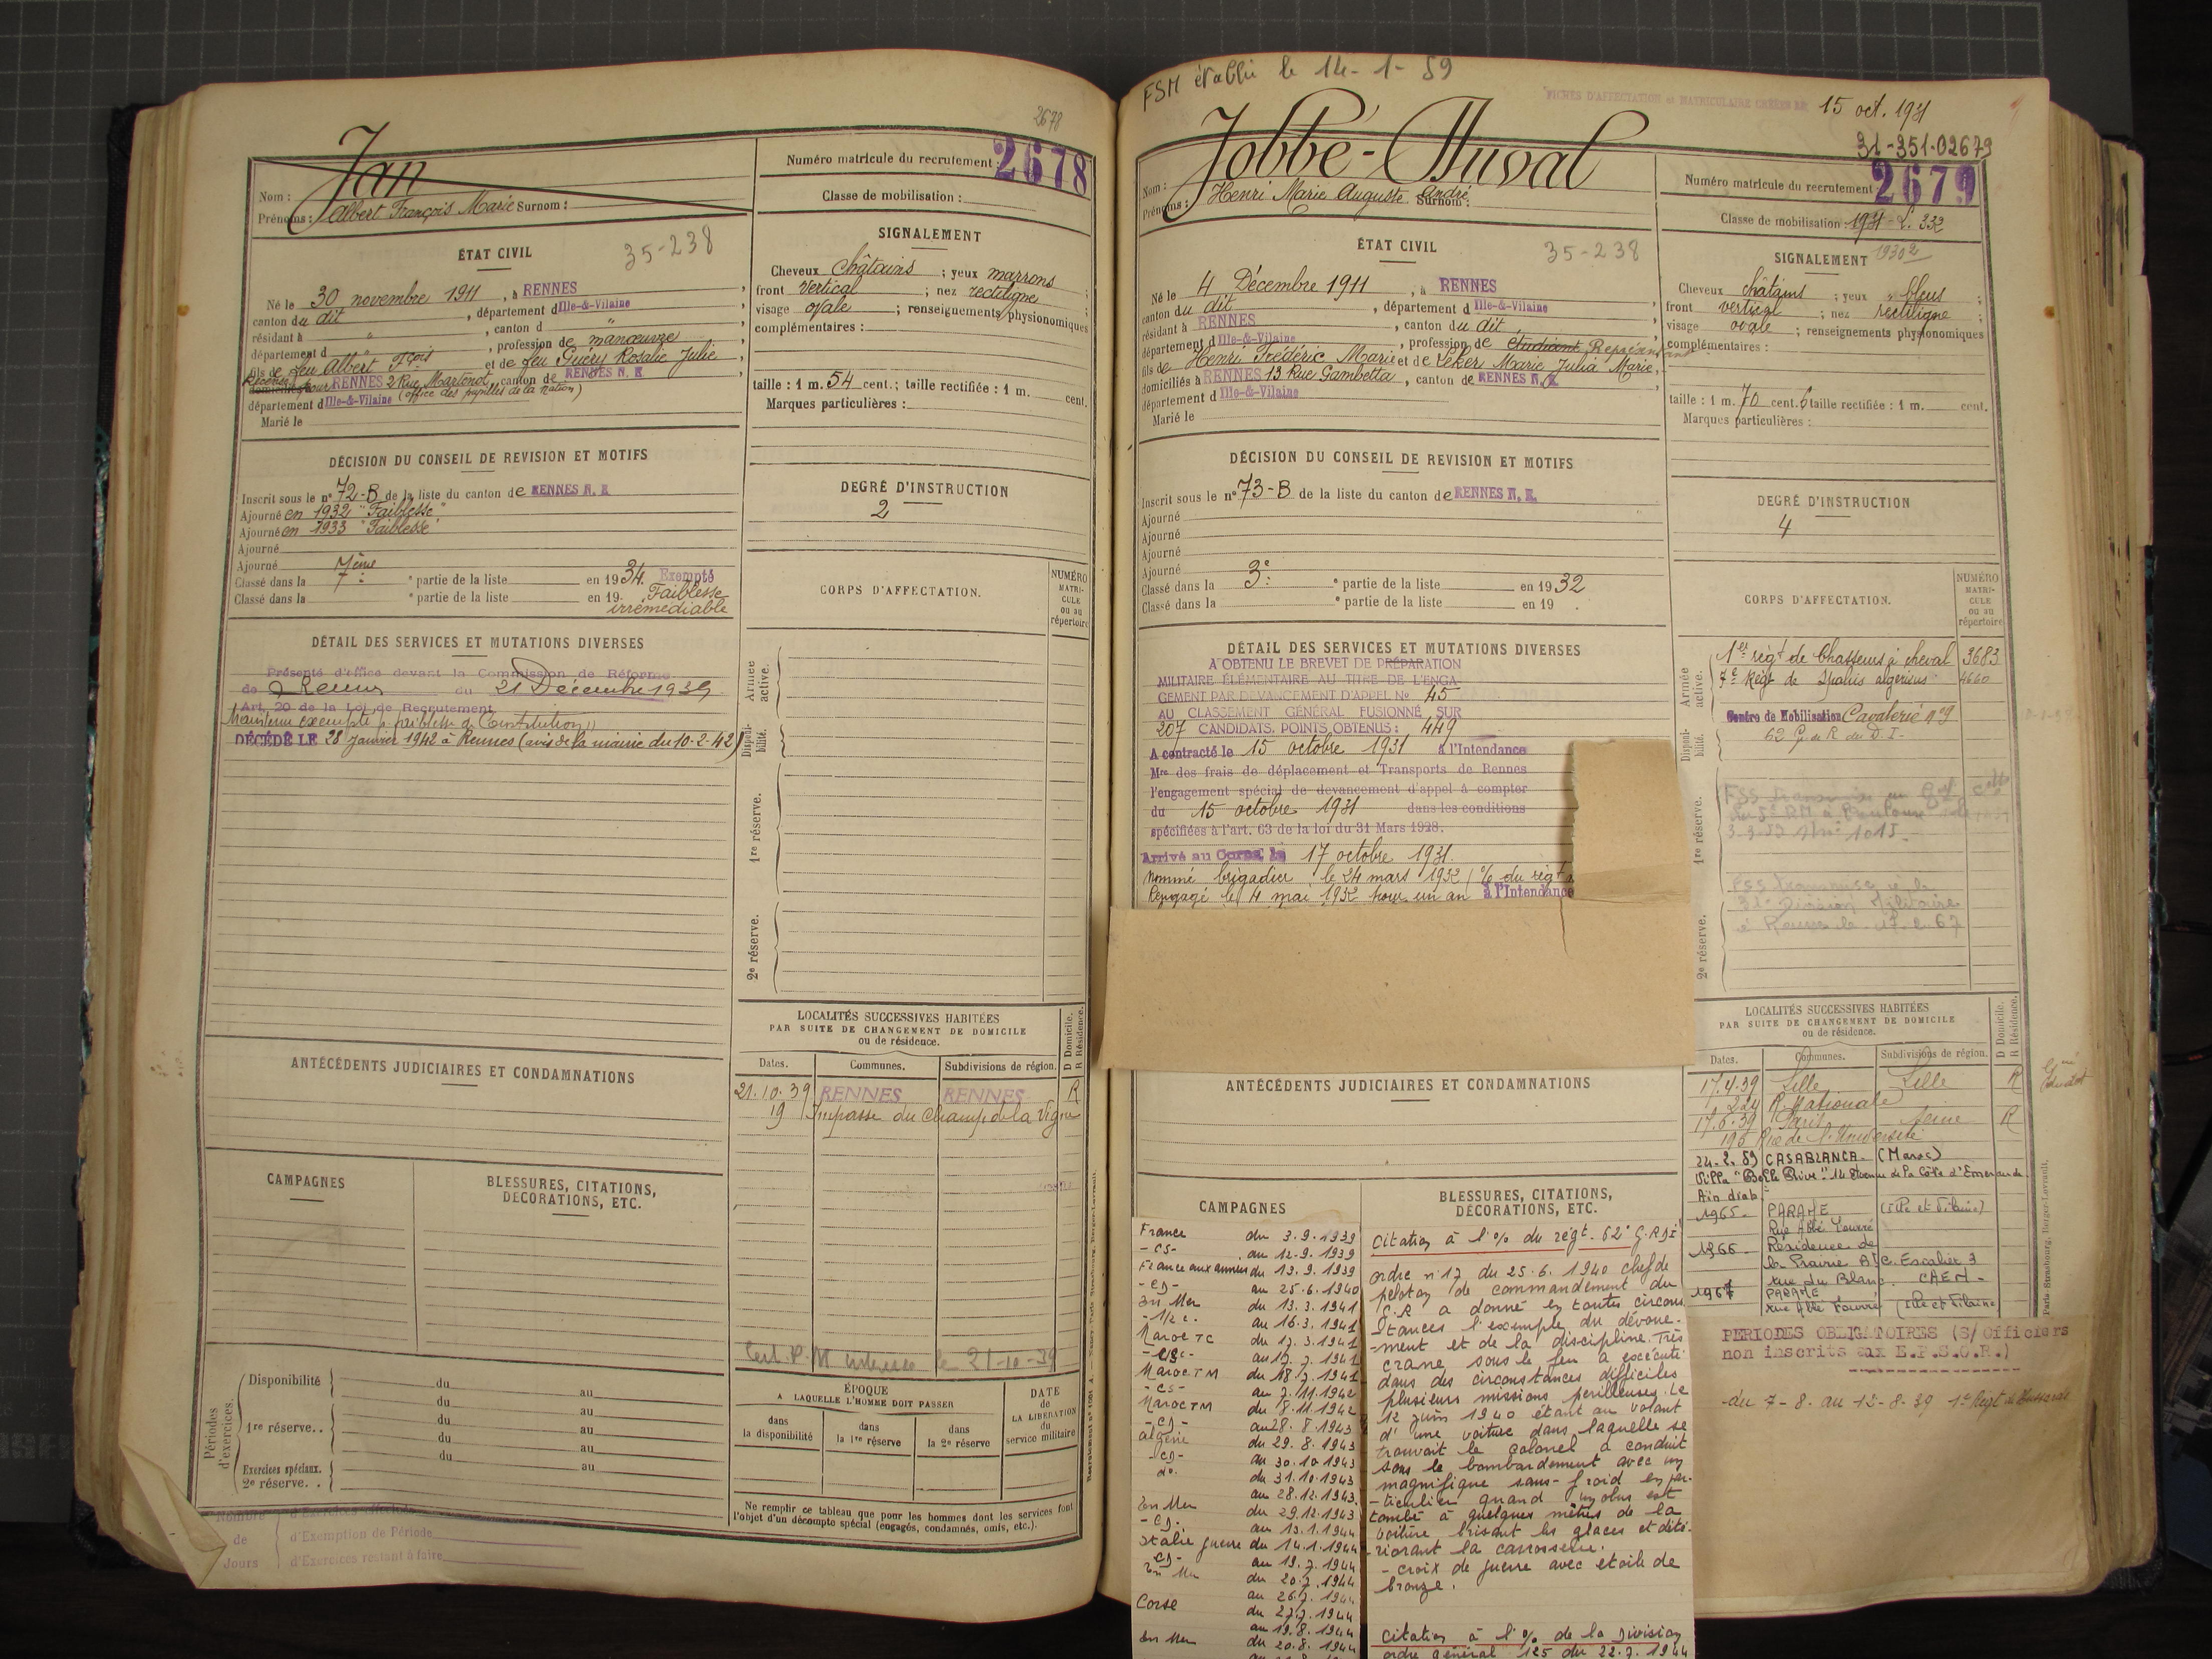 2678
Jan
Nom :
Prénoms : Albert François Marie Surnom :
Numéro matricule du recrutement : 2678
Classe de mobilisation :
ÉTAT CIVIL
35-238
Né le 30 novembre 1911, à RENNES
canton du dit, département d Ille-&-Vilaine
résidant à " , canton d "
département d " , profession de manœuvre
fils de feu Albert Fçois et de feu Guéry Rosalie Julie
RENNES 2 Rue Martenot, canton de RENNES N. E
département d Ille-&-Vilaine (office des pupilles de la nation)
Marié le
SIGNALEMENT
Cheveux châtains ; yeux marrons ;
front vertical ; nez rectiligne
visage ovale ; renseignements physionomiques
complémentaires :
taille : 1 m. 54 cent. ; taille rectifiée : 1 m. cent.
Marques particulières :
DÉCISION DU CONSEIL DE REVISION ET MOTIFS
Inscrit sous le n° 72-B de la liste du canton de RENNES N. E
Ajourné en 1932 "Faiblesse"
Ajourné en 1933 "Faiblesse"
Ajourné
Ajourné 7ème
Classé dans la 7e ° partie de la liste en 1934. Exempté
Classé dans la ° partie de la liste en 19 Faiblesse
irrémédiable
DEGRÉ D'INSTRUCTION
2
CORPS D'AFFECTATION.
NUMÉRO MATRI-CULE ou au répertoire
DÉTAIL DES SERVICES ET MUTATIONS DIVERSES
Présenté d'office devant la Commission de Réforme
de Rennes du 21 Décembre 1939
Art. 20 de la Loi de Recrutement
Maintenu exempté "faiblesse de Constitution"
DÉCÉDÉ LE 28 Janvier 1942 à Rennes (avis de la mairie du 10-2-42)
Armée active.
Disponibilité.
1re réserve.
2e réserve.
ANTÉCÉDENTS JUDICIAIRES ET CONDAMNATIONS
LOCALITÉS SUCCESSIVES HABITÉES
PAR SUITE DE CHANGEMENT DE DOMICILE
ou de résidence.
D Domicile.
R Résidence.
Dates. Communes. Subdivisions de région.
21.10.39 RENNES RENNES R
19 Impasse du Champ de la Vigne
CAMPAGNES
BLESSURES, CITATIONS,
DÉCORATIONS, ETC.
le 21-10-39
Périodes d'exercices.
Disponibilité du au
1re réserve. . du au
du au
du au
Exercices spéciaux. du au
2e réserve. .
ÉPOQUE
A LAQUELLE L'HOMME DOIT PASSER
dans la disponibilité
dans la 1re réserve
dans la 2e réserve
DATE de LA LIBÉRATION du service militaire
Ne remplir ce tableau que pour les hommes dont les services font
l'objet d'un décompte spécial (engagés, condamnés, omis, etc.).
Nombre d'Exercices
de d'Exemption de Période
Jours d'Exercices restant à faire
FSM établie le 14-1-59
FICHES D'AFFECTATION et MATRICULAIRE CRÉÉES LE 15 oct. 1931
31-351-02679
Jobbé-Duval
Nom :
Prénoms : Henri Marie Auguste André Surnom :
Numéro matricule du recrutement 2679
Classe de mobilisation : 1931
ÉTAT CIVIL
35-238
Né le 4 Décembre 1911, à RENNES
canton du dit, département d Ille-&-Vilaine
résidant à RENNES, canton du dit,
département d Ille-&-Vilaine, profession de étudiant Représentant
fils de Henri Frédéric Marie et de Leker Marie Julia Marie,
domiciliés à RENNES 13 Rue Gambetta, canton de RENNES N. E
département d Ille-&-Vilaine
Marié le
SIGNALEMENT
Cheveux châtains ; yeux bleus ;
front vertical ; nez rectiligne ;
visage ovale ; renseignements physionomiques
complémentaires :
taille : 1 m. 70 cent. 6 taille rectifiée : 1 m. cent.
Marques particulières :
DÉCISION DU CONSEIL DE REVISION ET MOTIFS
Inscrit sous le n° 73-B de la liste du canton de RENNES N. E.
Ajourné
Ajourné
Ajourné
Ajourné
Classé dans la 3e ° partie de la liste en 1932
Classé dans la ° partie de la liste en 19
DEGRÉ D'INSTRUCTION
4
CORPS D'AFFECTATION.
NUMÉRO MATRI-CULE ou au répertoire
DÉTAIL DES SERVICES ET MUTATIONS DIVERSES
A OBTENU LE BREVET DE PRÉPARATION
MILITAIRE ÉLÉMENTAIRE AU TITRE DE L'ENGA-
GEMENT PAR DEVANCEMENT D'APPEL N° 45
AU CLASSEMENT GÉNÉRAL FUSIONNÉ SUR
207 CANDIDATS. POINTS OBTENUS : 449
A contracté le 15 octobre 1931 à l'Intendance
Mre des frais de déplacement et Transports de Rennes
l'engagement spécial de devancement d'appel à compter
du 15 octobre 1931 dans les conditions
spécifiées à l'art. 63 de la loi du 31 Mars 1928.
Arrivé au Corps le 17 octobre 1931.
nommé brigadier le 24 mars 1932 (% du régt
Rengagé le 4 mai 1932 pour un an à l'Intendance
Armée active.
1er régt de Chasseurs à cheval 3683
7e Régt de Spahis algériens 4660
Disponibilité.
Centre de Mobilisation Cavalerie n°9
62 G. de R. de D.I.
1re réserve.
2e réserve.
ANTÉCÉDENTS JUDICIAIRES ET CONDAMNATIONS
LOCALITÉS SUCCESSIVES HABITÉES
PAR SUITE DE CHANGEMENT DE DOMICILE
ou de résidence.
D Domicile.
R Résidence.
Dates. Communes. Subdivisions de région.
17.4.39 Lille Lille R
224 R. Nationale
17.6.39 Paris Seine R
195 Rue de l'Université
24.2.59 CASABLANCA (Maroc)
Villa "Belle Rive" 14 avenue de la Côte d'Emeraude
Ain diab
1965 PARAME (Ille et Vilaine)
1966 Résidence de
la Prairie Escalier 3
rue du Blanc. CAEN
1967 PARAME
(Ille et Vilaine)
PERIODES OBLIGATOIRES (S/Officiers
non inscrits aux E.P.S.O.R.)
du 7-8. au 12-8-39 1er Régt de Hussards
CAMPAGNES
France du 3.9.1939
-CS- au 12-9.1939
France aux armées du 13.9.1939
-CD- au 25.6.1940
En Mer du 13.3.1941
-1/2 c- au 16.3.1941
Maroc TC du 17.3.1941
au 17.7.1941
Maroc TM du 18.7.1941
-CS- au 7.11.1942
Maroc TM du 8.11.1942
-CD- au 28.8.1943
Algérie du 29.8.1943
-CD- au 30.10.1943
do. du 31.10.1943
au 28.12.1943
En Mer du 29.12.1943
-CD- au 13.1.1944
Italie guerre du 14.1.1944
-CD- au 19.7.1944
En Mer du 20.7.1944
au 26.7.1944
Corse du 27.7.1944
au 19.8.1944
En Mer du 20.8.1944
BLESSURES, CITATIONS,
DÉCORATIONS, ETC.
Citation à l'% du régt. 62e G.R.D.I
ordre n°17 du 25.6.1940 chef de
peloton de commandement du
G.R a donné en toutes circons
tances l'exemple du dévoue-
-ment et de la discipline. Très
crâne sous le feu a exécuté
dans des circonstances difficiles
plusieurs missions périlleuses. Le
12 juin 1940 étant au volant
d'une voiture dans laquelle se
trouvait le colonel a conduit
sous le bombardement avec un
magnifique sang-froid en par-
-ticulier quand un obus est
tombé à quelques mètres de la
voiture brisant les glaces et dété-
-riorant la carrosserie.
- croix de guerre avec étoile de
bronze.
Citation à l'% de la Division
ordre général 125 du 22.7.1944